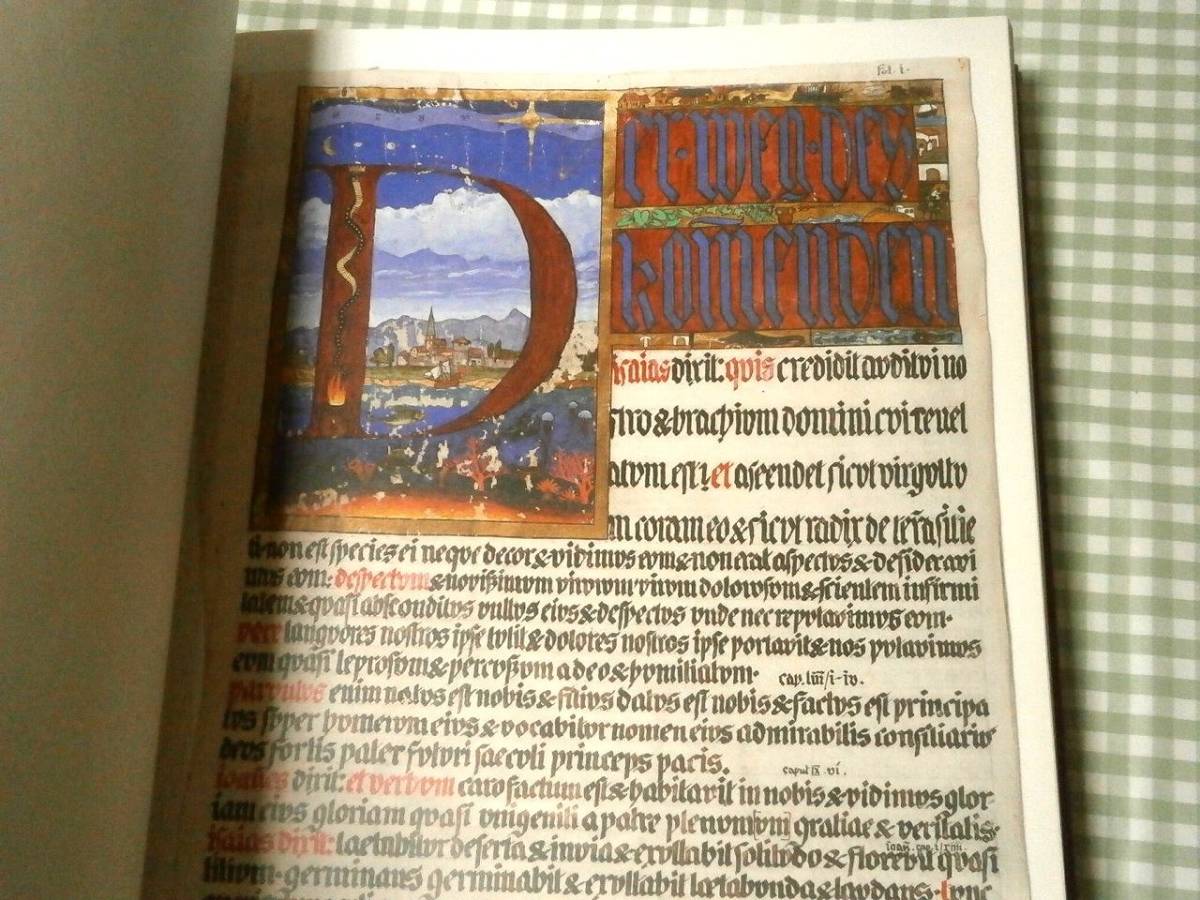 fol. i.
D er·weg·des
komenden
isaias dixit: quis credidit avditvi no
stro & brachivm domini cvi revel
atvm est? et ascendet sicvt virgvltv
m coram eo & sicvt radix de terra sitie
ti·non est species ei neqve decor & vidimvs evm & non erat aspectvs & desideravi
mvs evm: despectvm & novissimvm virorvm virvm dolorosvm & scientem infirmi
tatem & qvasi absconditvs vvltvs eivs & despectvs vnde nec repvtavimvs evm·
vere langvores nostros ipse tvlit & dolores nostros ipse portavit & nos pvtavimvs
evm qvasi leprosvm & percvssvm a deo & hvmiliatvm· cap. liii/i-iv.
parvvlvs enim natvs est nobis & filivs datvs est nobis & factvs est principa
tvs svper hvmervm eivs & vocabitvr nomen eivs admirabilis consiliariv
devs fortis pater fvtvri saecvli princeps pacis. capvt ix. vi.
ioannes dixit: et verbvm caro factum est & habitavit in nobis & vidimvs glor
iam eivs gloriam qvasi vnigeniti a patre plenvm[vm] gratiae & veritatis·
ioan. cap. i/xiiii.
isaias dixit: laetabitvr deserta & invia & exvltabit solitvdo & florebit qvasi
lilivm·germinans germinabit & exvltabit laetabvnda & lavdans·